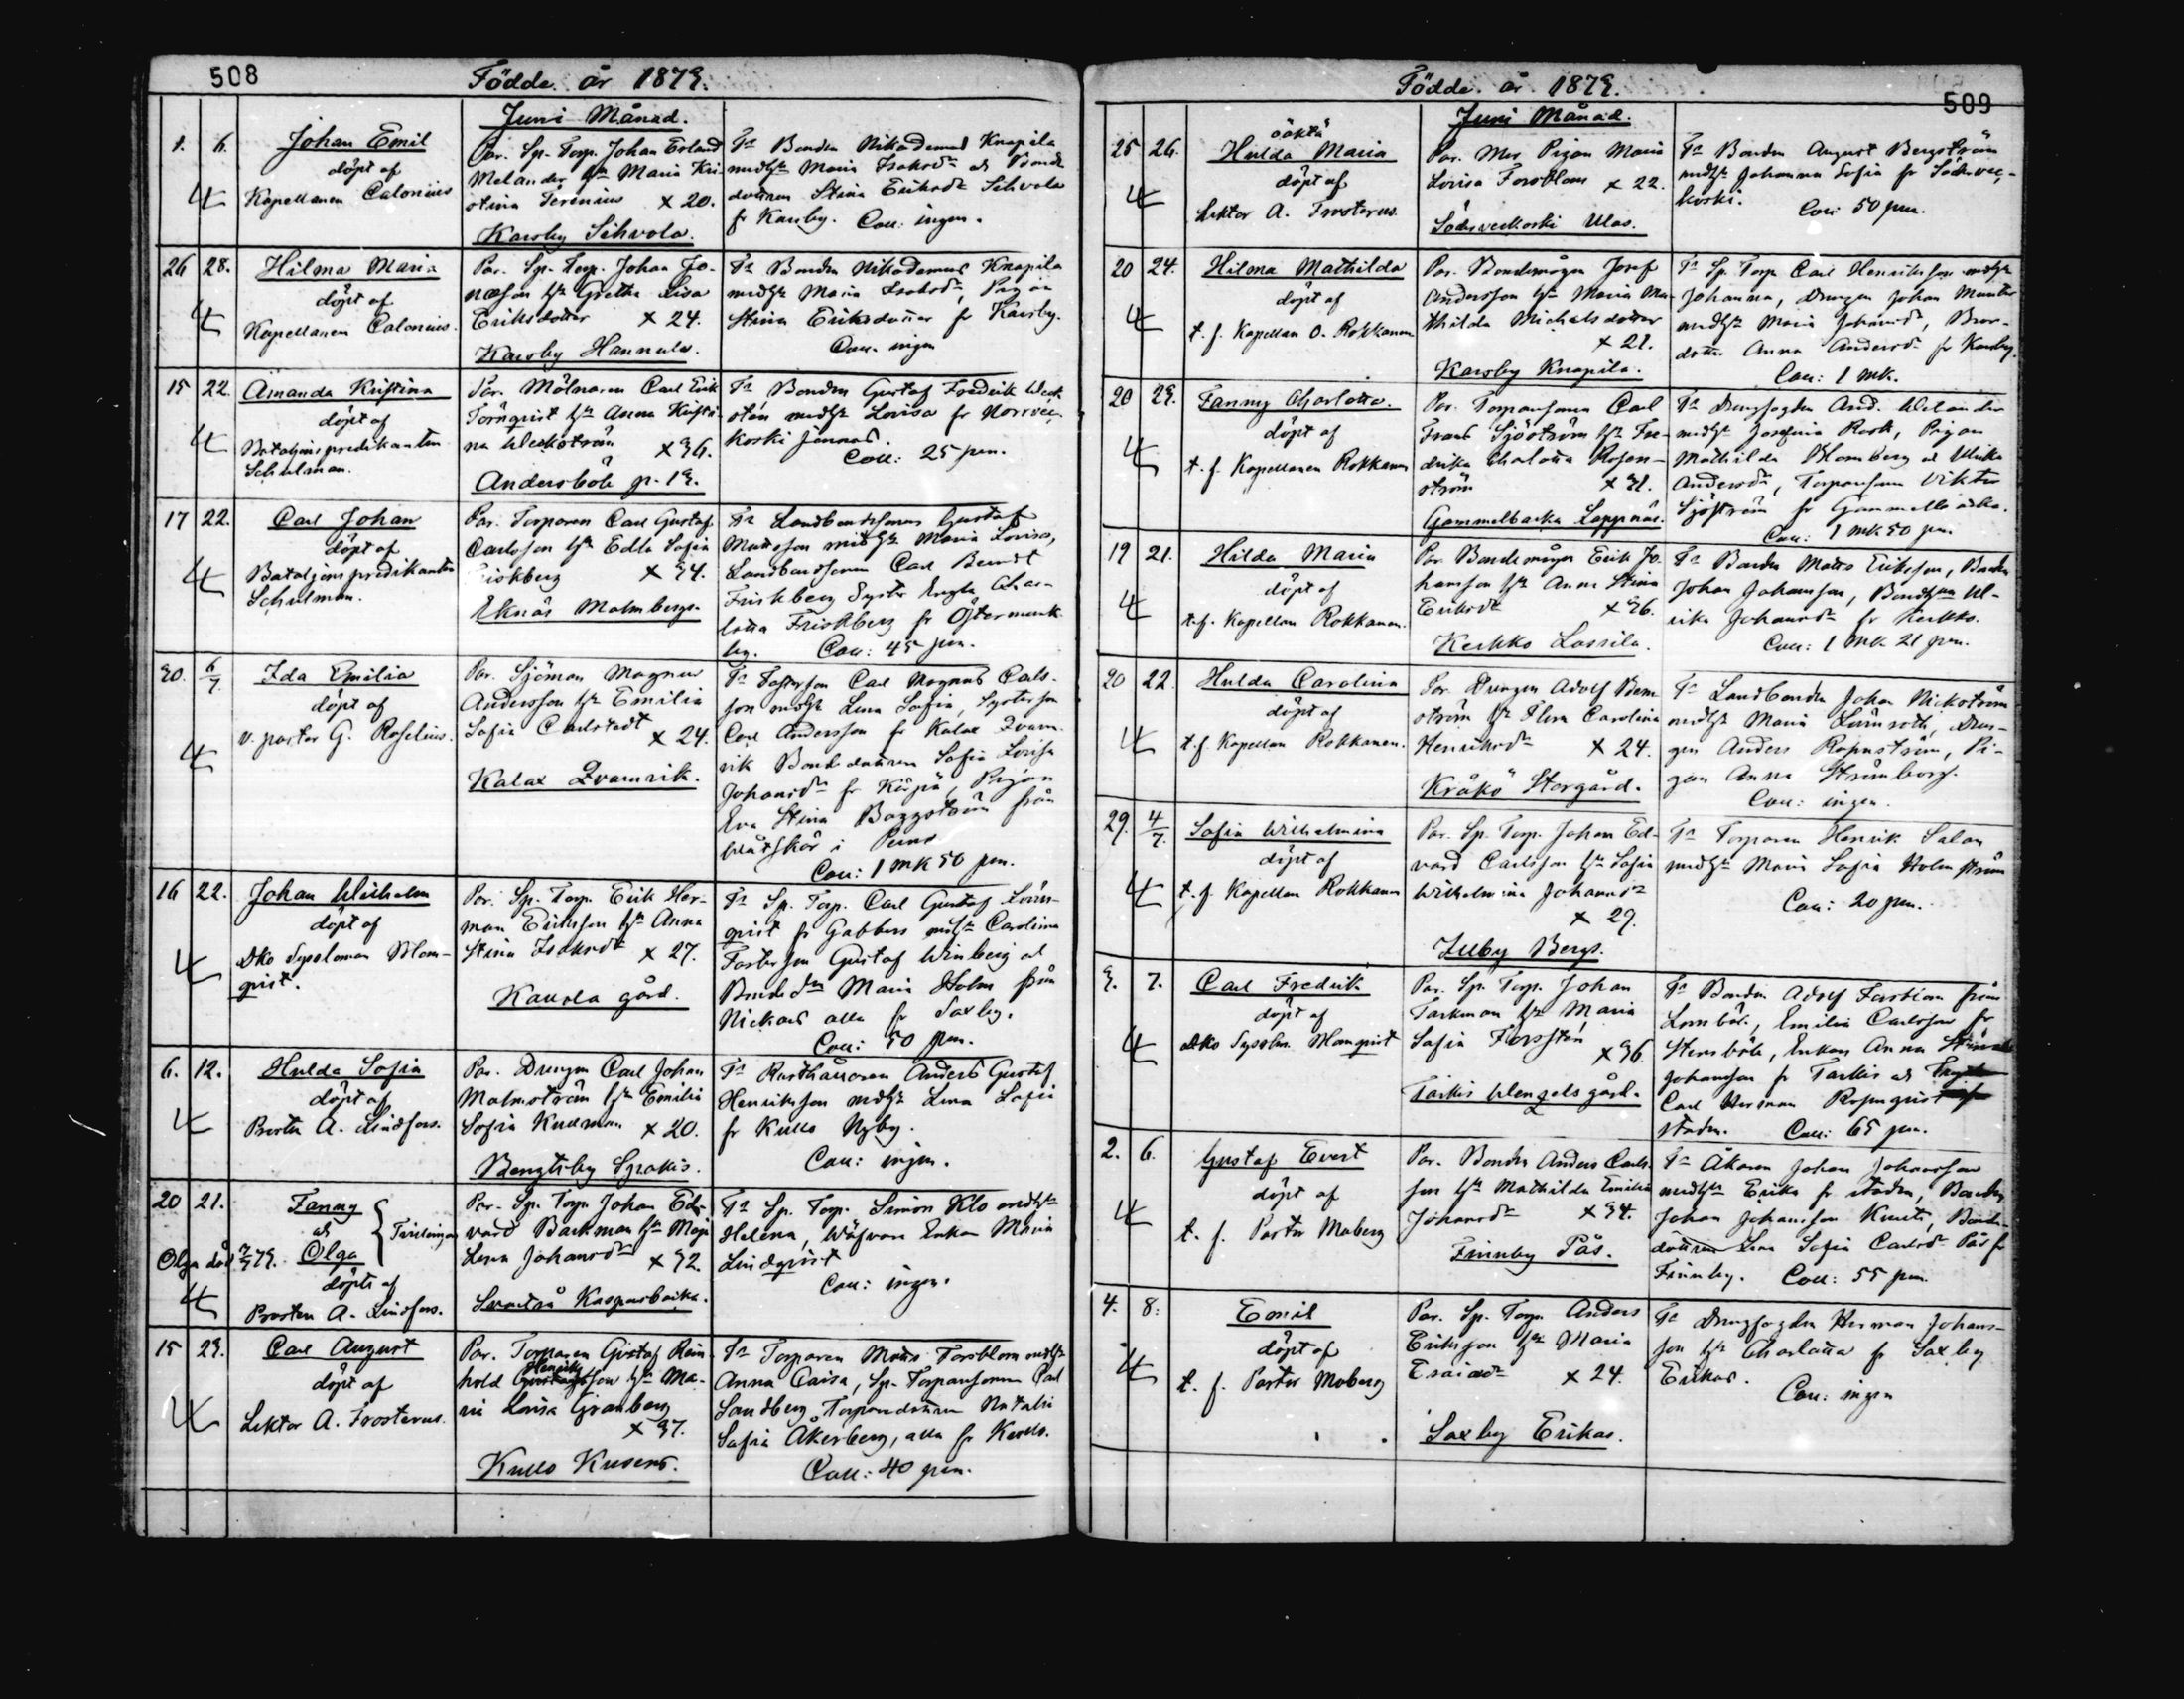 508
Födde år 1879.
Juni Månad.
1. 6. Johan Emil
döpt af
Kapellanen Calonius
Par. Sp. Torp. Johan Erland
Melander hu Maria Kri-
stina Terenius x 20.
Karsby Sihvola.
Tn Bonden Nikodemus Knapila
medhu Maria Isaksdr o Bonde
dottren Stina Eriksdr Sihvola
fr Karsby. Coll: ingen.
26 28. Hilma Maria
döpt af
Kapellanen Calonius.
Par. Sp. Torp. Johan Jo-
nasson hu Gretha Lisa
Eriksdotter x 24.
Karsby Hannula.
Tn Bonden Nikodemus Knapila
medhu Maria Isaksdr, Pigan
Stina Eriksdotter fr Karsby.
Coll. ingen
15 22. Amanda Kristina
döpt af
Bataljonspredikanten
Schulman.
Par. Mölnaren Carl Erik
Törnqvist hu Anna Kristi-
na Weckström x 36.
Andersböle p. 19.
Tn Bonden Gustaf Fredrik Weck
stén medhu Lovisa fr Norrvec,
koski Jännas.
Coll: 25 pen.
17 22. Carl Johan
döpt af
Bataljons predikanten
Schulman.
Par. Torparen Carl Gustaf
Carlsson hu Edla Sofia
Friskberg x 34.
Eknäs Malmbergs.
Tn Landbondesonen Gustaf
Mattsson medhu Maria Lovisa,
Landbondsonen Carl Berndt
Friskberg Syster Engla Char-
lotta Friskberg fr Östermunk
by. Coll: 45 pen.
30. 6/7. Ida Emilia
döpt af
v. pastor G. Roselius.
Par. Sjöman Magnus
Andersson hu Emilia
Sofia Carlstedt x 24.
Kalax Qvarnvik.
Tn Fosterson Carl Magnus Carls-
son medhu Lena Sofia, Systerson
Carl Andersson fr Kalax Qvarn-
vik Bondedottren Sofia Lovisa
Johansdr fr Kärpä, Pigan
Eva Stina Baggström från
Våtskär i Perno
Coll: 1 mk 50 pen.
16 22. Johan Wilhelm
döpt af
Dko Syssloman Blom-
qvist.
Par. Sp. Torp. Erik Her-
man Eriksson hu Anna
Stina Isaksdr x 27.
Kaurla gård.
Tn Sp. Torp. Carl Gustaf Lönn-
qvist fr Gabbers medhu Carolina
Fosterson Gustaf Winberg o
Bondedn Maria Holm från
Nickars alla fr Saxby.
Coll: 50 pen.
6. 12. Hulda Sofia
döpt af
Prosten A. Lindfors.
Par. Drengen Carl Johan
Malmström hu Emilia
Sofia Kullman x 20.
Bengtsby Sprakis.
Tn Rusthållaren Anders Gustaf
Henriksson medhu Lena Sofia
fr Kullo Nyby.
Coll: ingen.
20 21. Fanny
o
Olga död 2/7 79. Olga } Tvillingar
döpte af
Prosten A. Lindfors.
Par. Sp. Torp. Johan Ed-
vard Backman hu Maja
Lena Johansdr x 32.
Svartså Kasparbacka.
Tn Sp. Torp. Simon Klo medhu
Helena, Wäfvare Enkan Maria
Lindqvist
Coll: ingen.
15 23. Carl August
döpt af
Lektor A. Frosterus.
Par. Torparen Gustaf Rein-
hold Henriksson hu Ma-
ria Lovisa Granberg
x 37.
Kullo Kusens.
Tn Torparen Matts Forsblom medhu
Anna Caisa, Sp. Torparsonen Carl
Sandberg Torparedottren Natalia
Sofia Åkerberg, alla fr Kullo.
Coll: 40 pen.
509
Födde år 1879.
Juni Månad.
25 26. oäkta
Hulda Maria
döpt af
Lektor A. Frosterus.
Par. Mor Pigan Maria
Lovisa Forsblom x 22.
Söderveckoski Ulas.
Tn Bonden August Bergström
medhu Johanna Sofia fr Södervec,-
koski. Coll: 50 pen.
20 24. Hilma Mathilda
döpt af
t. f. Kapellan O. Rokkanen
Par. Bondemågen Josef
Andersson hu Maria Ma-
thilda Michelsdotter
x 21.
Karsby Knapila.
Tn Sp. Torp Carl Henriksson medhu
Johanna, Drengen Johan Munter
medhu Maria Johansdr, Bror-
dotter Anna Andersdr fr Karsby.
Coll: 1 mk.
20 29. Fanny Charlotta.
döpt af
t. f. Kapellanen Rokkanen
Par. Torparsonen Carl
Frans Sjöström hu Fre-
drika Charlotta Rosen-
ström x 31.
Gammelbacka Lappnäs.
Tn Drengfogden And. Welander
medhu Josefina Rosk, Pigan
Mathilda Blomberg o Ulrika
Andersdr, Torparsonen Viktor
Sjöström fr Gammelbacka.
Coll: 1 mk 50 pen.
19 21. Hilda Maria
döpt af
t. f. Kapellan Rokkanen.
Par. Bondemågen Erik Jo-
hansson hu Anna Stina
Eriksdr x 36.
Kerkko Lassila.
Tn Bonden Matts Eriksson, Bonden
Johan Johansson, Bondhun Ul-
rika Johansdr fr Kerkko.
Coll: 1 mk 21 pen.
20 22. Hulda Carolina
döpt af
t. f. Kapellan Rokkanen.
Par. Drengen Adolf Blom
ström hu Elva Carolina
Henriksdr x 24.
Kråkö Storgård.
Tn Landbonden Johan Nickström
medhu Maria Lönnroth, Dren-
gen Anders Rosenström, Pi-
gan Anna Strömborg.
Coll: ingen.
29. 4/7. Sofia Wilhelmina
döpt af
t. f. Kapellan Rokkanen
Par. Sp. Torp. Johan Ed-
vard Carlsson hu Sofia
Wilhelmina Johansdr
x 29.
Juby Bergs.
Tn Torparen Henrik Salon
medhu Maria Sofia Holmström
Coll: 20 pen.
3. 7. Carl Fredrik
döpt af
Dko Sysslm. Blomqvist
Par. Sp. Torp. Johan
Tarkman hu Maria
Sofia Forsstén
x 36.
Tarkis Wenzels gård.
Tn Bonden Adolf Fastian från
Lomböle, Emilia Carlsson fr
Stensböle, Enkan Anna Stina
Johansson fr Tarkis o
Carl Herman Rosenqvist
staden. Coll: 65 pen.
2. 6. Gustaf Evert
döpt af
t. f. Pastor Moberg
Par. Bonden Anders Carls-
son hu Mathilda Emilia
Johansdr x 34.
Finnby Pås.
Tn Åkaren Johan Johansson
medhu Erika fr staden, Bonden
Johan Johansson Knuts, Bonde-
dottren Lena Sofia Carlsdr Pås fr
Finnby. Coll: 55 pen.
4. 8. Emil
döpt af
t. f. Pastor Moberg
Par. Sp. Torp. Anders
Eriksson hu Maria
Esaiaedr x 24.
Saxby Erikas.
Tn Drengfogden Herman Johans-
son hu Charlotta fr Saxby
Erikas.
Coll: ingen